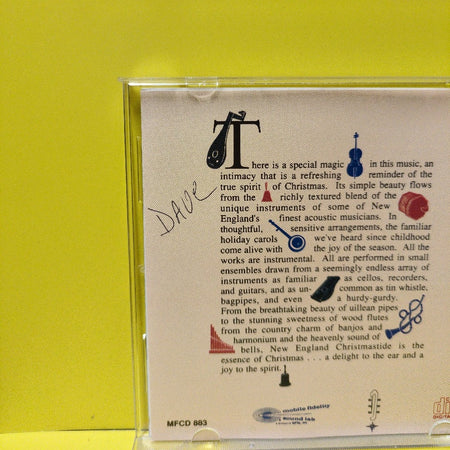 There is a special magic in this music, an
intimacy that is a refreshing reminder of the
true spirit of Christmas. Its simple beauty flows
from the richly textured blend of the
unique instruments of some of New
England's finest acoustic musicians. In
thoughtful, sensitive arrangements, the familiar
holiday carols we've heard since childhood
come alive with the joy of the season. All the
works are instrumental. All are performed in small
ensembles drawn from a seemingly endless array of
instruments as familiar as cellos, recorders,
and guitars, and as un- common as tin whistle,
bagpipes, and even a hurdy-gurdy.
From the breathtaking beauty of uillean pipes
to the stunning sweetness of wood flutes
from the country charm of banjos and
harmonium and the heavenly sound of
bells, New England Christmastide is the
essence of Christmas . . . a delight to the ear and a
joy to the spirit.
DAVE
mobile fidelity
sound lab
MFCD 883